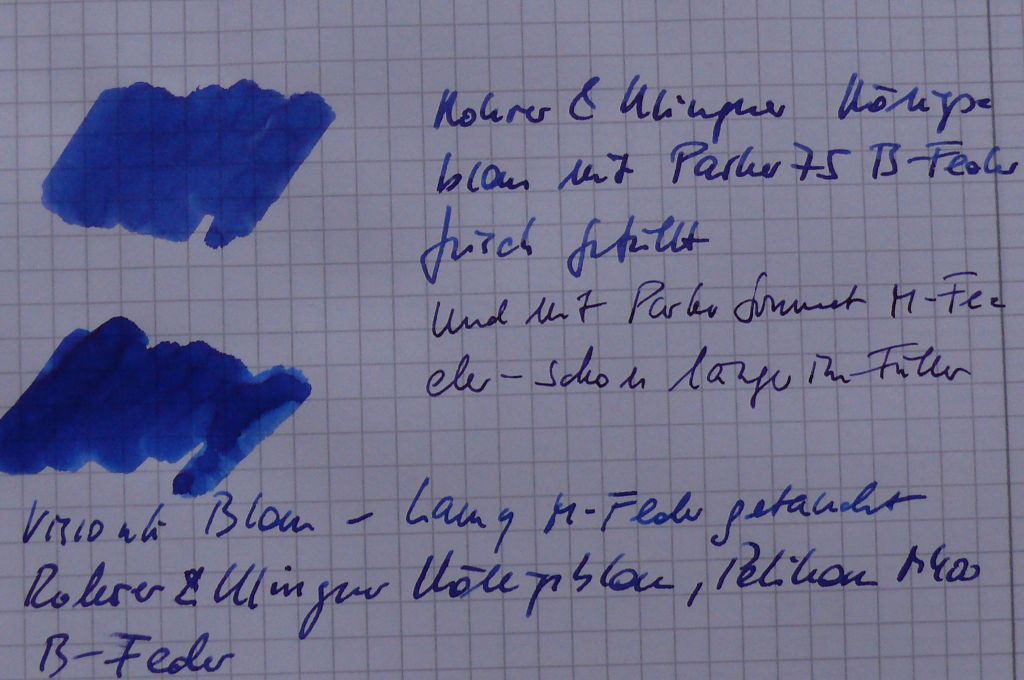 Rohrer & Klingner Königs-
blau mit Parker 75 B-Feder
frisch gefüllt
und mit Parker Sonnet M-Fe-
der - schon länger im Füller
Visconti Blau - Lamy M-Feder getaucht
Rohrer & Klingner Königsblau, Pelikan M400
B-Feder